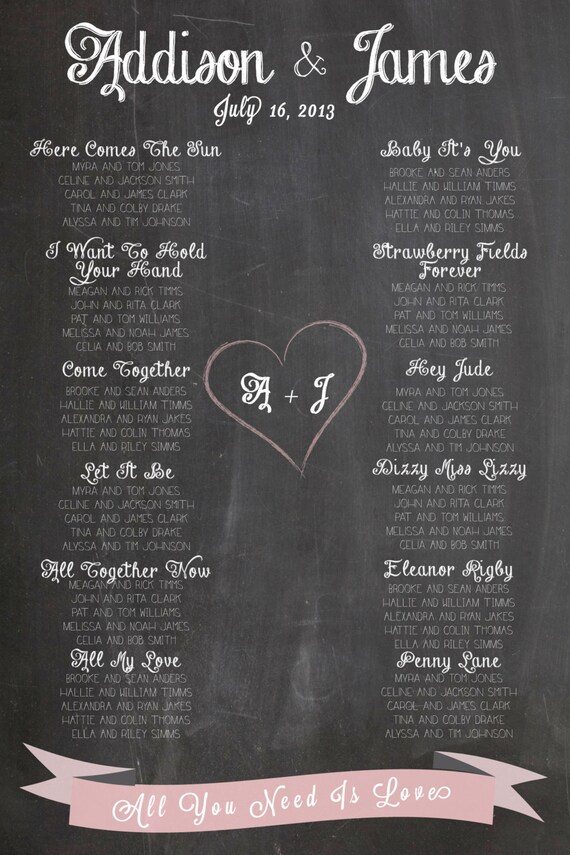 Addison & James
July 16, 2013
Here Comes The Sun
MYRA AND TOM JONES
CELINE AND JACKSON SMITH
CAROL AND JAMES CLARK
TINA AND COLBY DRAKE
ALYSSA AND TIM JOHNSON
I Want To Hold
Your Hand
MEAGAN AND RICK TIMMS
JOHN AND RITA CLARK
PAT AND TOM WILLIAMS
MELISSA AND NOAH JAMES
CELIA AND BOB SMITH
Come Together
BROOKE AND SEAN ANDERS
HALLIE AND WILLIAM TIMMS
ALEXANDRA AND RYAN JAKES
HATTIE AND COLIN THOMAS
ELLA AND RILEY SIMMS
Let It Be
MYRA AND TOM JONES
CELINE AND JACKSON SMITH
CAROL AND JAMES CLARK
TINA AND COLBY DRAKE
ALYSSA AND TIM JOHNSON
All Together Now
MEAGAN AND RICK TIMMS
JOHN AND RITA CLARK
PAT AND TOM WILLIAMS
MELISSA AND NOAH JAMES
CELIA AND BOB SMITH
All My Love
BROOKE AND SEAN ANDERS
HALLIE AND WILLIAM TIMMS
ALEXANDRA AND RYAN JAKES
HATTIE AND COLIN THOMAS
ELLA AND RILEY SIMMS
A + J
Baby It's You
BROOKE AND SEAN ANDERS
HALLIE AND WILLIAM TIMMS
ALEXANDRA AND RYAN JAKES
HATTIE AND COLIN THOMAS
ELLA AND RILEY SIMMS
Strawberry Fields
Forever
MEAGAN AND RICK TIMMS
JOHN AND RITA CLARK
PAT AND TOM WILLIAMS
MELISSA AND NOAH JAMES
CELIA AND BOB SMITH
Hey Jude
MYRA AND TOM JONES
CELINE AND JACKSON SMITH
CAROL AND JAMES CLARK
TINA AND COLBY DRAKE
ALYSSA AND TIM JOHNSON
Dizzy Miss Lizzy
MEAGAN AND RICK TIMMS
JOHN AND RITA CLARK
PAT AND TOM WILLIAMS
MELISSA AND NOAH JAMES
CELIA AND BOB SMITH
Eleanor Rigby
BROOKE AND SEAN ANDERS
HALLIE AND WILLIAM TIMMS
ALEXANDRA AND RYAN JAKES
HATTIE AND COLIN THOMAS
ELLA AND RILEY SIMMS
Penny Lane
MYRA AND TOM JONES
CELINE AND JACKSON SMITH
CAROL AND JAMES CLARK
TINA AND COLBY DRAKE
ALYSSA AND TIM JOHNSON
All You Need Is Love